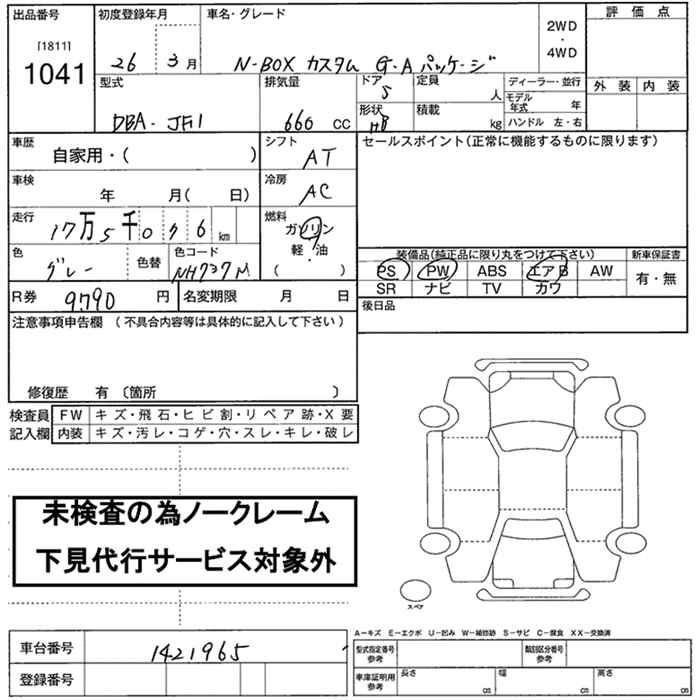 出品番号 初度登録年月 車名・グレード 評価点
[1811]
1041
26年 3月 N-BOX カスタム G・Aパッケージ 2WD・4WD
型式 排気量 ドア 5 定員 人 ディーラー・並行 外装 内装
DBA-JF1 660 CC 形状 HB 積載 kg モデル年式 年
ハンドル 左・右
車歴 自家用・( ) シフト AT セールスポイント(正常に機能するものに限ります)
車検 年 月( 日) 冷房 AC
走行 17万5千076 km 燃料 ガソリン
軽・油
( )
色 グレー 色替 色コード NH737M
装備品(純正品に限り丸をつけて下さい) 新車保証書
PS PW ABS エアB AW 有・無
SR ナビ TV カワ
R券 9790 円 名変期限 月 日 後日品
注意事項申告欄 (不具合内容等は具体的に記入して下さい)
修復歴 有〔箇所 〕
検査員記入欄 FW キズ・飛石・ヒビ割・リペア跡・X要
内装 キズ・汚レ・コゲ・穴・スレ・キレ・破レ
未検査の為ノークレーム
下見代行サービス対象外
スペア
A−キズ E−エクボ U−凹み W−補修跡 S−サビ C−腐食 XX−交換済
車台番号 1421965 型式指定番号 参考 類別区分番号 参考
登録番号 車庫証明用 参考 長さ cm 幅 cm 高さ cm